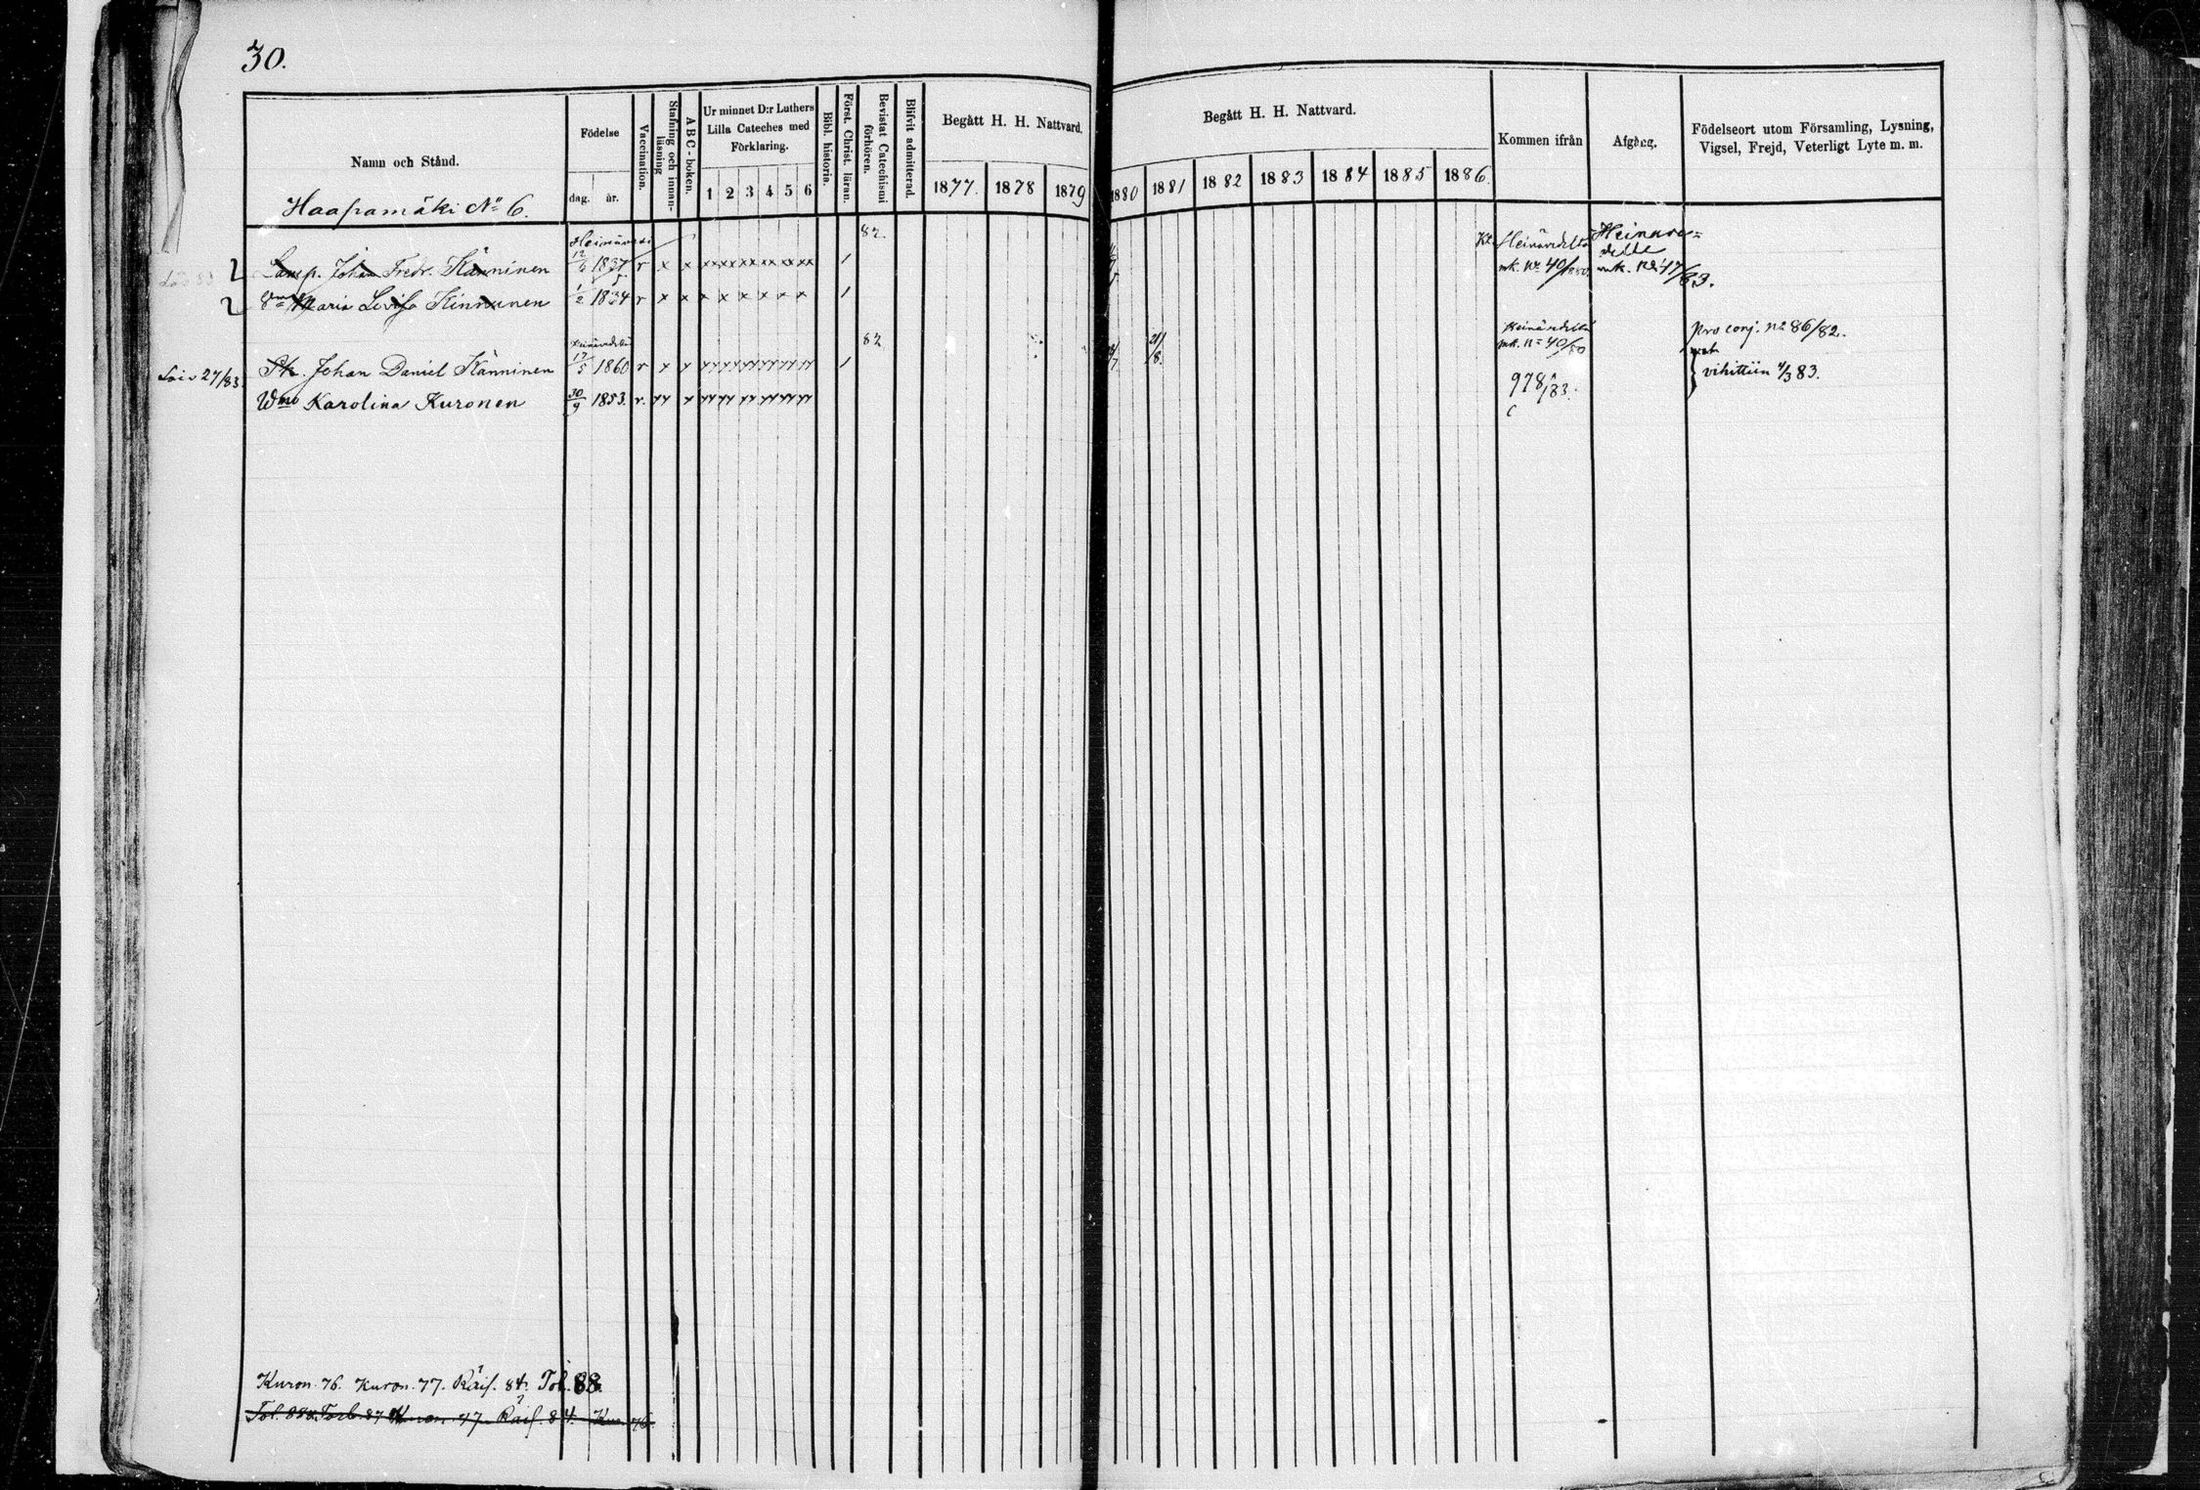 30.
Namn och Stånd.
Födelse
dag. år.
Vaccination.
Stafning och innan-läsning
ABC-boken.
Ur minnet D:r Luthers Lilla Cateches med Förklaring.
1 2 3 4 5 6
Bibl. historia.
Först. Christ. läran.
Bevistat Catechismi förhören.
Blifvit admitterad.
Begått H. H. Nattvard.
1877. 1878 1879
Begått H. H. Nattvard.
1880 1881 1882 1883 1884 1885 1886.
Kommen ifrån
Afgång.
Födelseort utom Församling, Lysning, Vigsel, Frejd, Veterligt Lyte m. m.
Haapamäki No 6.
Heinävesi 82
Lamp. Johan Fredr. Känninen 12/6 1837 r x x xx xx xx xx xx xx / Heinävedeltä mk. No 40/1880 Heinäve=delle mk. No 47/83.
Vmo Maria Lovisa Kinnunen 1/2 1834 r x x x x x x x x /
Heinävedeltä 82
Lois 27/83 Pk. Johan Daniel Känninen 17/5 1860 r x x / 21/8. Heinävedeltä mk. No 40/80 pro conj. No 86/82.
vihittiin 4/3 83.
Wmo Karolina Kuronen 30/9 1853. r. 978/83.
Kuron. 76. Kuron. 77. Räis. 84. Tol. 88.
Tol. 88. Torb. 87 Kuron. 77. Räis. 84. Kur. 76.